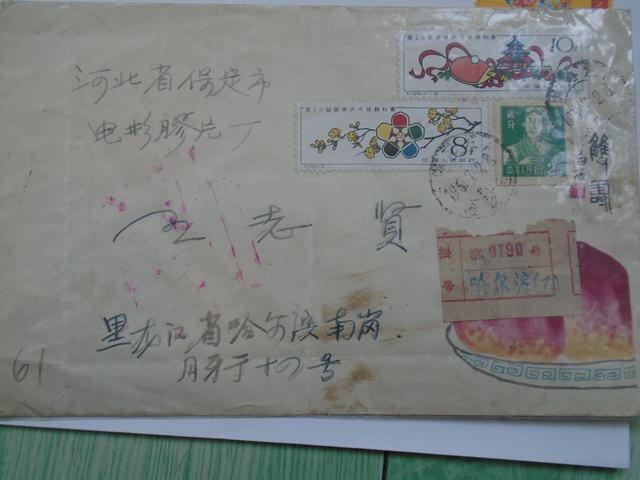 第26届世界乒乓球锦标赛
10分
中国人民邮政
第26届世界乒乓球锦标赛
8分
中国人民邮政
贰分
中国人民邮政
河北省保定市
电影膠片厂
王志贤
雙壽
白石
0190号
号
哈尔滨
黑龙江省哈尔滨南岗
月牙于十四号
61